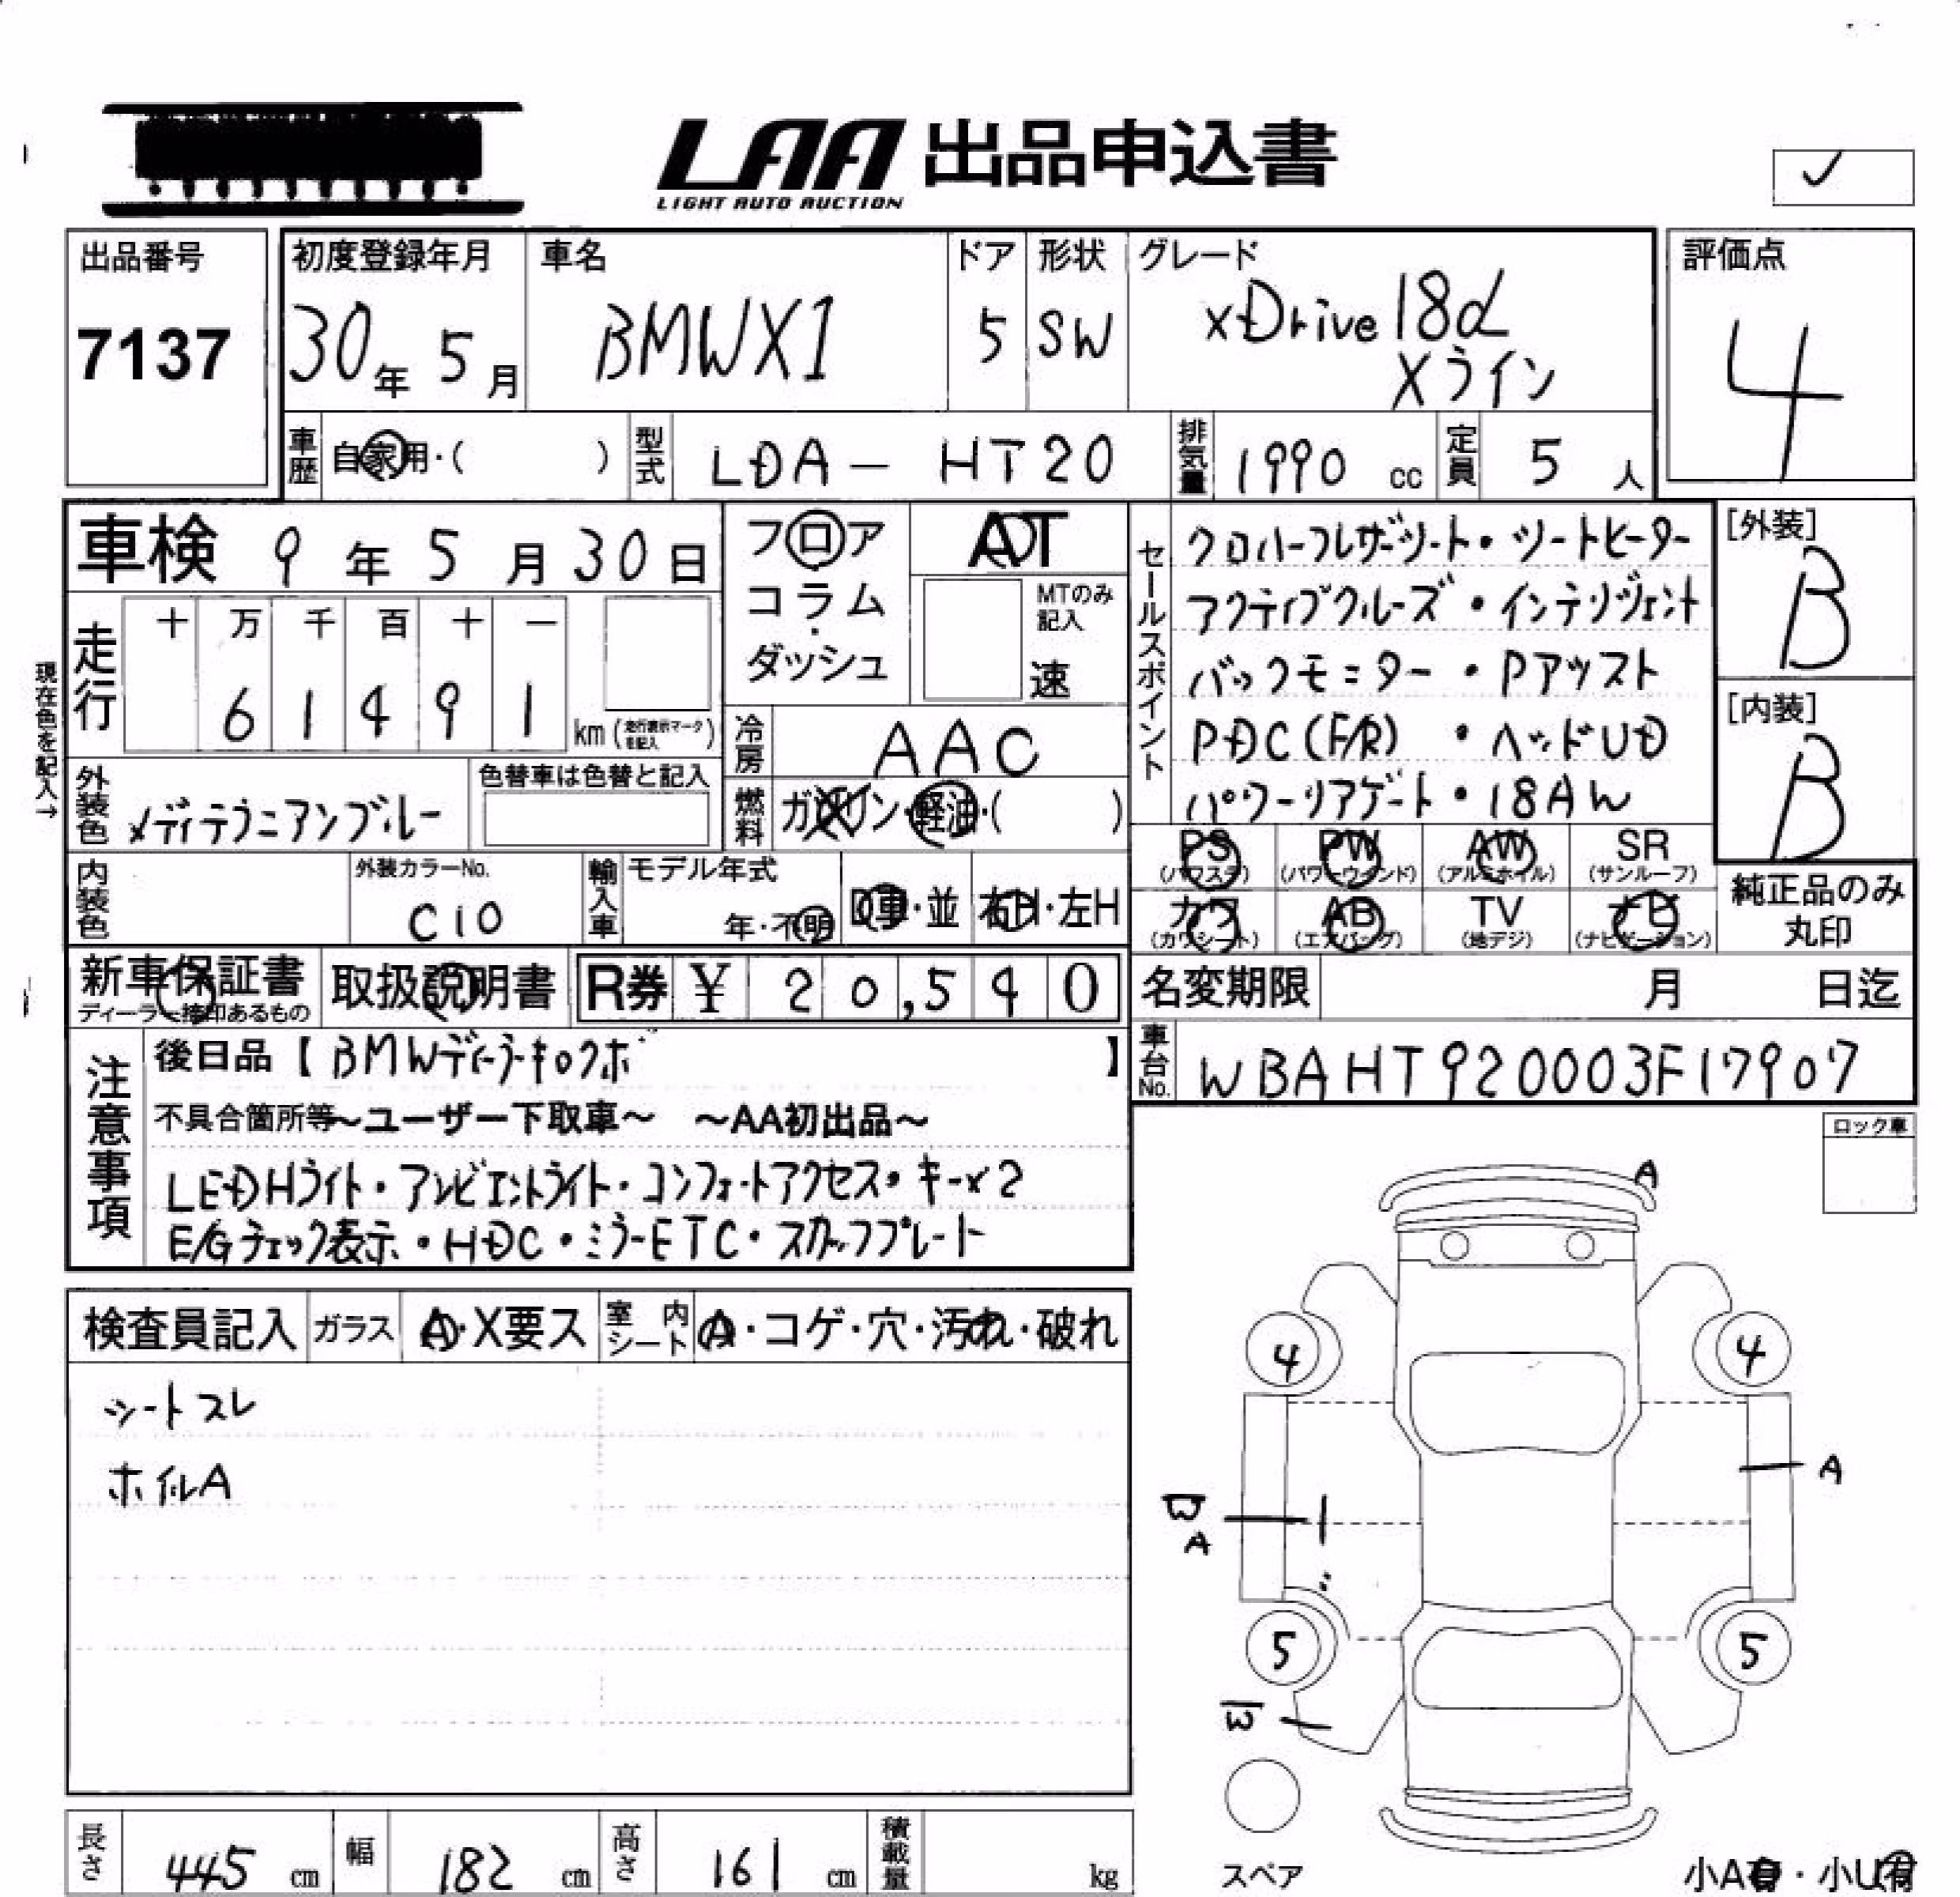 LAA 出品申込書
LIGHT AUTO AUCTION
✓
出品番号
7137
初度登録年月
30年 5月
車名
BMWX1
ドア
5
形状
SW
グレード
xDrive18d
Xライン
評価点
4
車歴 自家用・( )
型式 LDA- HT20
排気量 1990 cc
定員 5 人
車検 9年 5月 30日
フロア
コラム
・
ダッシュ
AT
MTのみ
記入
速
セールスポイント
クロハーフレザーシート・シートヒーター
アクティブクルーズ・インテリジェント
バックモニター・Pアシスト
PDC(F/R)・ヘッドUD
パワーリアゲート・18AW
[外装]
B
[内装]
B
現在色を記入→
走行
十 万 千 百 十 一
6 1 4 9 1
km(走行表示マークを記入)
冷房 AAC
外装色 メディテラニアンブルー
色替車は色替と記入
燃料 ガソリン・軽油・( )
PS
(パワステ)
PW
(パワーウインド)
AW
(アルミホイル)
SR
(サンルーフ)
カワ
(カワシート)
AB
(エアバッグ)
TV
(地デジ)
ナビ
(ナビゲーション)
純正品のみ
丸印
内装色
外装カラーNo.
C10
輸入車
モデル年式
年・不明
D車・並
右H・左H
新車保証書
ディーラー捺印あるもの
取扱説明書
R券 ¥ 20,540
名変期限 月 日迄
車台No. WBAHT920003F17907
注意事項
後日品【BMWディーラーキロクボ】
不具合箇所等~ユーザー下取車~ ~AA初出品~
LEDHライト・アンビエントライト・コンフォートアクセス・キー×2
E/Gチェック表示・HDC・ミラーETC・スカッフプレート
ロック車
検査員記入
ガラス A・X要ス
室内シート A・コゲ・穴・汚れ・破れ
シートスレ
ホイルA
A
4
4
A
B
A
5
5
B
スペア
小A有・小U有
長さ 445 cm
幅 182 cm
高さ 161 cm
積載量 kg